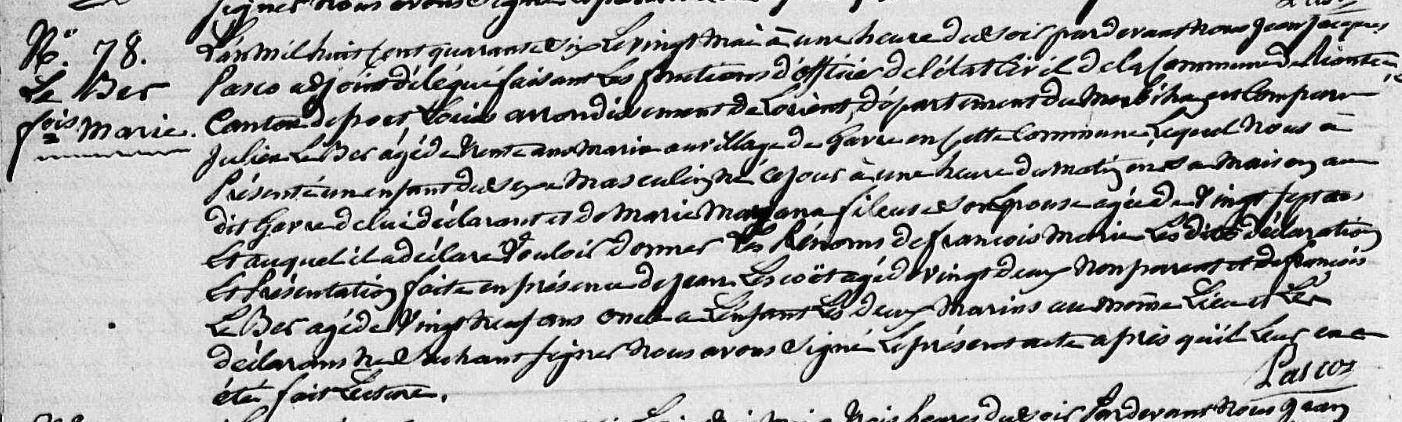 signer nous avons signé
N.° 78.
Le Ber
fois Marie.
L'an mil huit cent quarante six Le vingt Mai à une heure du soir pardevant nous Jean Jacques
Pasco adjoint délégué faisant Les fonctions d'officier de l'état Civil de la Commune de Riantec,
Canton de port Louis arrondissement de Lorient, département du Morbihan est Comparu
Julien Le Ber agé de trente ans Marin au village de Gavre en cette Commune Lequel Nous à
Présenté un enfant du sexe Masculin né ce jour à une heure du matin en sa Maison au
dit Gavre de lui déclarant et de Marie fileuse son Epouse agée de Vingt sept ans
Et auquel il a déclaré Vouloir donner Les Prénoms de françois Marie Les dites déclaration
Et Présentation faite en présence de Jean agé de vingt deux Non parent et de françois
Le Ber agé de Vingt neuf ans oncle a L'enfant Les deux Marins au même Lieu et Les
déclarans ne sachant signer Nous avons signé Le présent acte après qu'il Leur en a
été fait Lecture.
Pasco
trois heures du soir Pardevant nous Jean